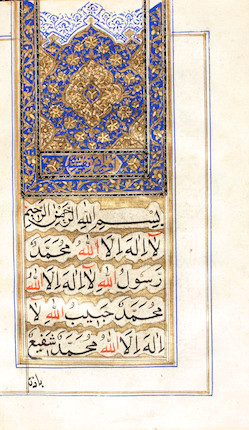 بسم الله الرحمن الرحیم
لَا اِلٰهَ اِلَّا اللهُ مُحَمَّدٌ
رَسُولُ اللهِ لَا اِلٰهَ اِلَّا اللهُ
مُحَمَّدٌ حَبِیبُ اللهِ لَا
اِلٰهَ اِلَّا اللهُ مُحَمَّدٌ شَفِیعُ